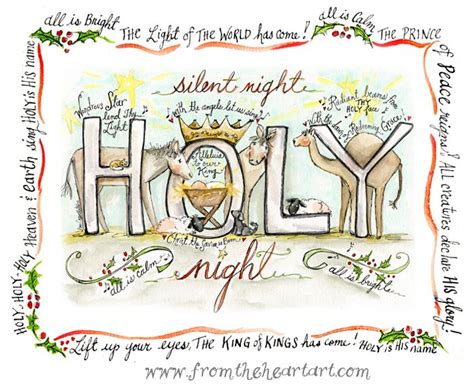 all is Bright
THE Light of THE WORLD has come!
all is Calm
THE PRINCE
of Peace reigns! ALL creatures declare His glory!
Heaven & earth sing HOLY is His name
HOLY-HOLY-HOLY
silent night
Wondrous Star
lend Thy
Light
with the angels let us sing
Radiant beams from
THY
HOLY face
with the
Redeeming Grace
Alleluia
to our
King
HOLY
Christ the Savior is Born
night
all is calm
all is bright
Lift up your eyes, THE KING of KINGS has come! HOLY is His name
www.fromtheheartart.com